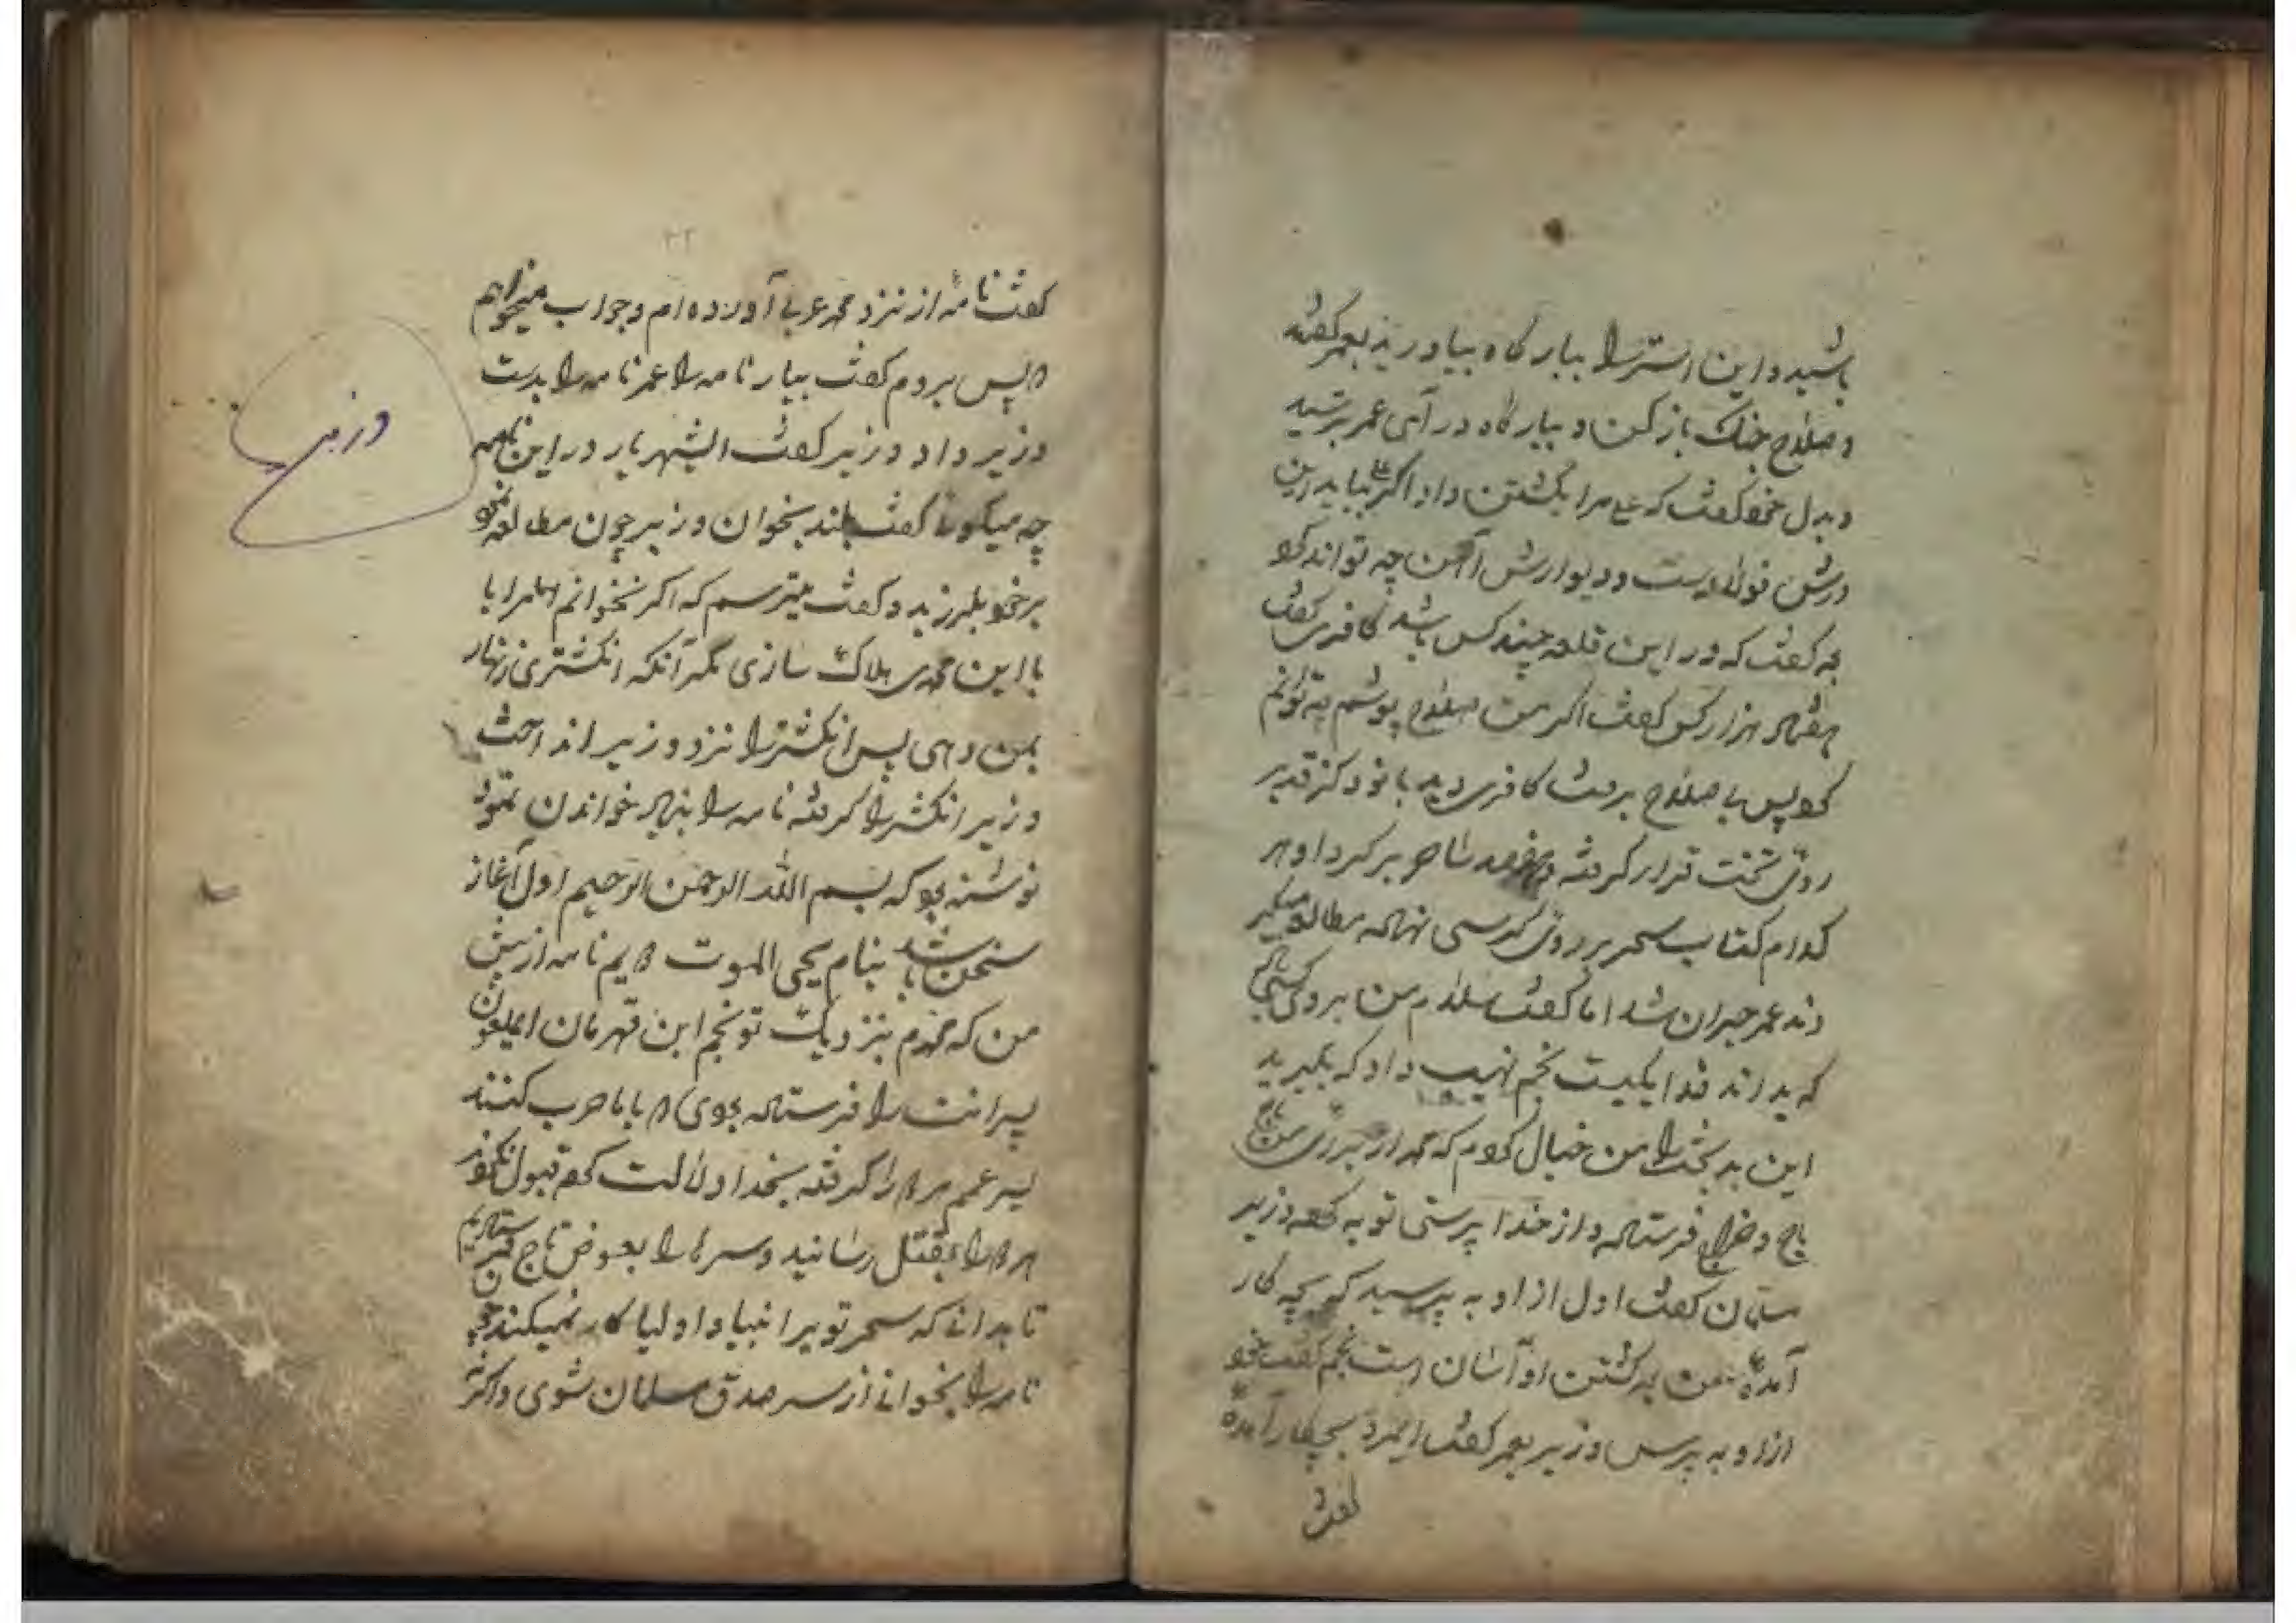 باشید و این استر را ببارگاه بیاورید بعمر گفته
و صلاح جنگ باز کن و ببارگاه در آی عمر ترسید
و بدل خود گفت که علی مرا بکشتن داد اگر علی بیاید زین
درش فولاد است و دیوارش آهن چه تواند کرد
به گفت که در این قلعه چند کس باشد کافری گفت
هفتاد هزار کس گفت اگر من صلاح پوشم چه توانم
کرد پس بی صلاح برفت کافری دید با نود گز قد بر
روی تخت قرار گرفته و هفصد ساحر بر گرد او هر
کدام کتاب سحر بر روی کرسی نهاده مطالعه میکر
دند عمر حیران شد اما گفت سلام من بر و کسی باد
که بداند خدا یکیست نجم نهیب داد که بگیرید
این بدبخت را من خیال کردم که محمد از برای من
باج و خراج فرستاده و از خدا پرستی توبه کرده وزیر
سلمان گفت اول از او به پرسید که بچه کار
آمدهٔ بعد از کشتن او آسان است نجم گفت خود
از او به پرس وزیر بعمر گفت ایمرد بچکار آمدهٔ
گفت
۲۲
گفت نامهٔ از نزد محمد عربی آورده‌ام و جواب میخواهم
پس بردم گفت بیار نامه را عمر نامه را بدست
وزیر داد وزیر گفت ایشهریار در این نامه
چه میگوید گفت بلند بخوان وزیر چون مطالعه نمود
بر خود بلرزید و گفت میترسم که اگر بخوانم مرا با
با این محمدی هلاک سازی مگر آنکه انگشتری زنهار
بمن دهی پس انگشتر را نزد وزیر انداخت
وزیر انگشتر را گرفته نامه را بنیاد خواندن نمود
نوشته بود که بسم الله الرحمن الرحیم اول آغاز
سخن باشد بنام یحیی الموت این نامه از پیش
من که محمدم بنزدیک تو نجم ابن قهرمان ایملعون
پسرانت را فرستاده بودی که با ما حرب کنند
پسر عمم هر دو را گرفته بخدا دلالت کرد قبول نکردند
هر دو را بقتل رسانید و سر ها را بعوض باج فرستادیم
تا بدانی که سحر تو بر انبیا و اولیا کار نمیکند چون
نامه را بخوانی از سر صدق مسلمان شوی و اگر نه